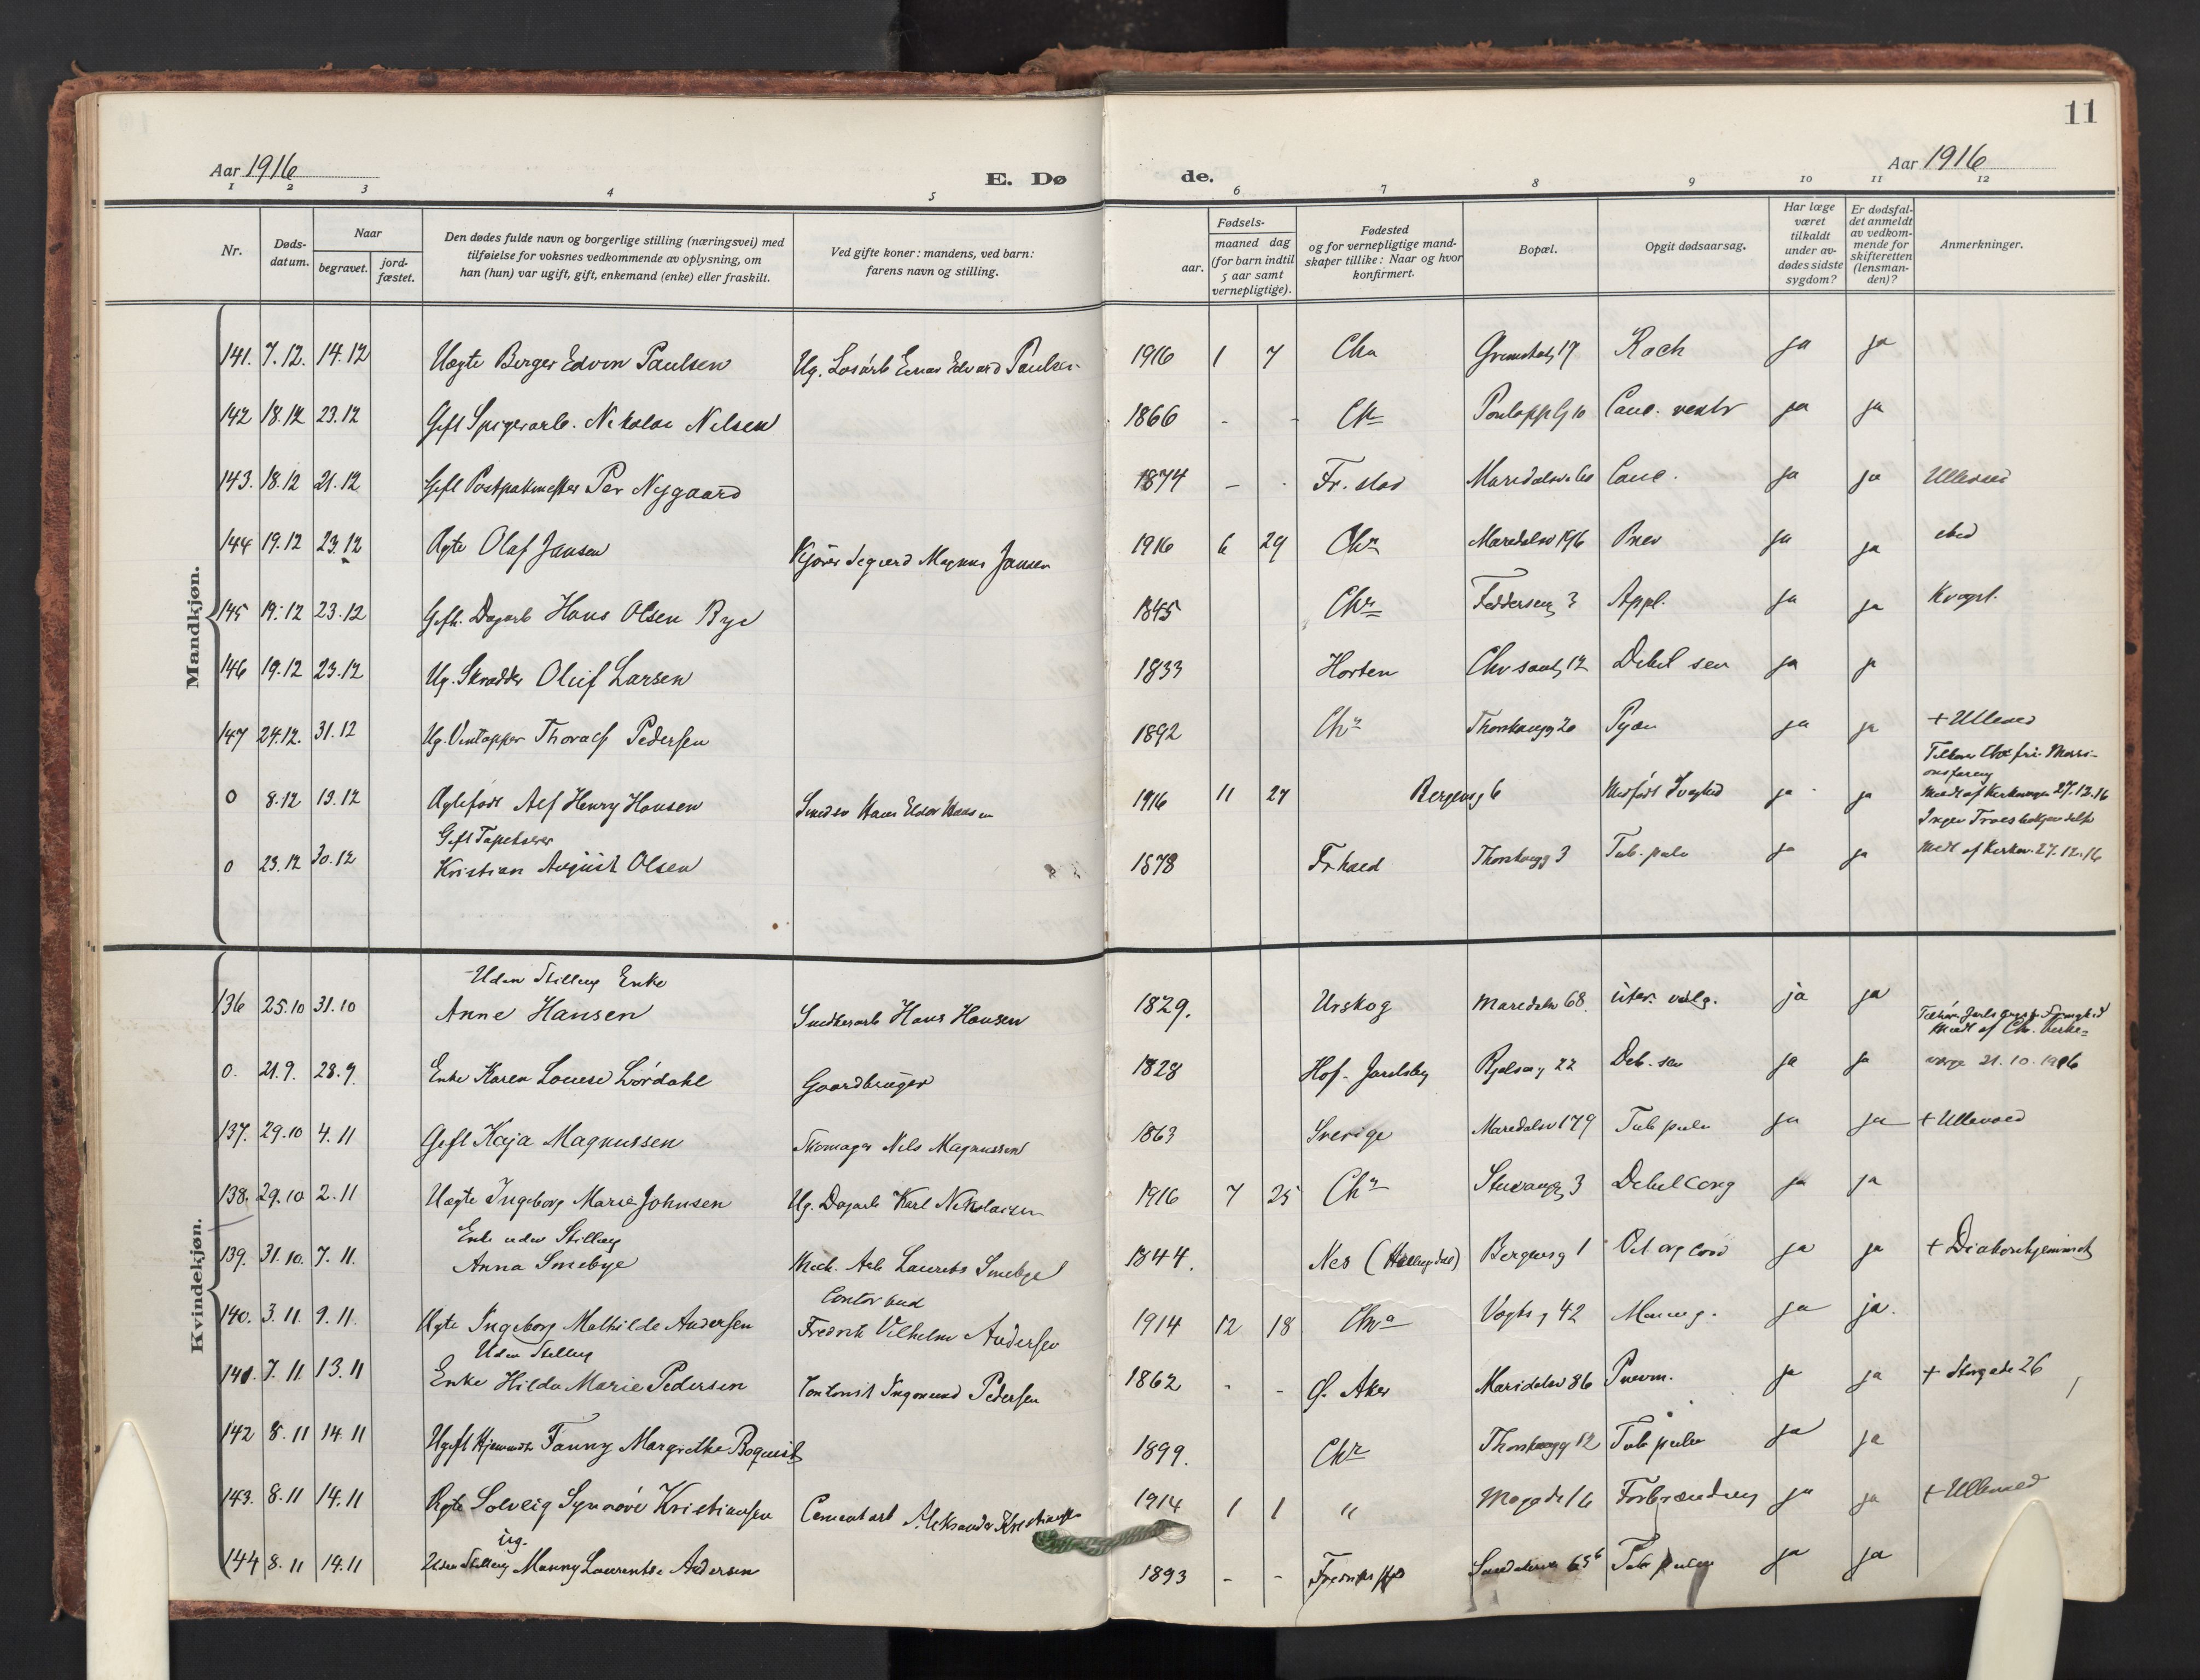 11
Aar 1916
Aar 1916
E. Dø
de.
1 2 3 4 5 6 7 8 9 10 11 12
Nr.
Døds-
datum.
Naar
begravet.
jord-
fæstet.
Den dødes fulde navn og borgerlige stilling (næringsvei) med
tilføielse for voksnes vedkommende av oplysning, om
han (hun) var ugift, gift, enkemand (enke) eller fraskilt.
Ved gifte koner: mandens, ved barn:
farens navn og stilling.
Fødsels-
aar.
maaned dag
(for barn indtil
5 aar samt
vernepligtige).
Fødested
og for vernepligtige mand-
skaper tillike: Naar og hvor
konfirmert.
Bopæl.
Opgit dødsaarsag.
Har læge
været
tilkaldt
under av-
dødes sidste
sygdom?
Er dødsfal-
det anmeldt
av vedkom-
mende for
skifteretten
(lensman-
den)?
Anmerkninger.
Mandkjøn.
141. 7.12. 14.12 Uægte Birger Edvin Paulsen Ug. Edvard Paulsen 1916 1 7 Chra 17 Rach ja ja
142 18.12 23.12 Gift Nikolai Nilsen 1866 - - Chr 10 Canc. ventr ja ja
143. 18.12 21.12 Gift Per Nygaard 1874 - - Fr. stad Maridalsv. 60 Canc. ja ja Ullevaal
144 19.12 23.12 Ægte Olaf Jansen Kjører Sigurd Magnus Jansen 1916 6 29 Chra Maridalsv 196 Pnev ja ja
145 19.12 23.12 Gift. Dagarb Hans Olsen Bye 1845 Chra Feddersensg 3 Appl. ja ja
146 19.12 23.12 Ug. Skrædder Oluf Larsen 1833 Horten 12 Debil sen ja ja
147 24.12. 31.12 Ug. Vintapper Pedersen 1892 Chra 20 Pyæm ja ja + Ulleval
0 8.12 13.12 Ægtefødt Alf Henry Hansen Hansen 1916 11 27 Bergensg 6 Medfødt Svaghed ja ja
Medl af Kirkeverge 27.12.16
Gift Tapetserer
0 23.12 30.12 Kristian August Olsen 1878 Fr. hald 3 Tub. pulm ja ja Medl af Kirkev. 27.12.16
Kvindekjøn.
Uden Stilling Enke
136 25.10 31.10 Anne Hansen Snedkerarb Hans Hansen 1829. Urskog Maridalsv 68. ja ja
0. 21.9. 28.9. Enke Karen Louise Lørdahl Gaardbruger 1828 Hof - Jarlsberg 22 Deb. sen ja ja 21.10.1916
137. 29.10 4.11 Gift Kaja Magnussen Skomager Nils Magnussen 1863 Sverige Maridalsv 179 Tub pulm ja ja + Ullevaal
138. 29.10 2.11 Uægte Ingeborg Marie Johnsen Ug. Dagarb Karl Nikolaisen 1916 7 25 Chra Stavangg 3 Debil cong ja ja
Enke uden Stilling
139. 31.10. 7.11. Anna Smebye Mek. Arb Laurits Smebye 1844. Nes (Hallingdal) Bergensg 1 ja ja + Diakonhjemmet
Contorbud
140. 3.11. 9.11. Ægte Ingeborg Mathilde Andersen Fredrik Vilhelm Andersen 1914 12 18 Chra Vogtsg 42 Mening. ja ja.
Uden Stilling
141. 7.11 13.11 Enke Hilda Marie Pedersen Kontorist Ingvard Pedersen 1862 - - Ø. Aker Maridalsv 86 Pnevm. ja ja + Storgade 26
142 8.11 14.11 Ugift Hjemmeh Fanny Margrethe Boquist 1899. Chra 12 Tub pulm ja ja
143. 8.11 14.11 Ægte Solveig Synnøve Kristiansen Cementarb Aleksander Kristiansen 1914 1 1 " 16 Forbrænding ja ja + Ullevaal
ug.
144 8.11 14.11 Uden Stilling Manny Laurentse Andersen 1893 - - Tub pulm ja ja